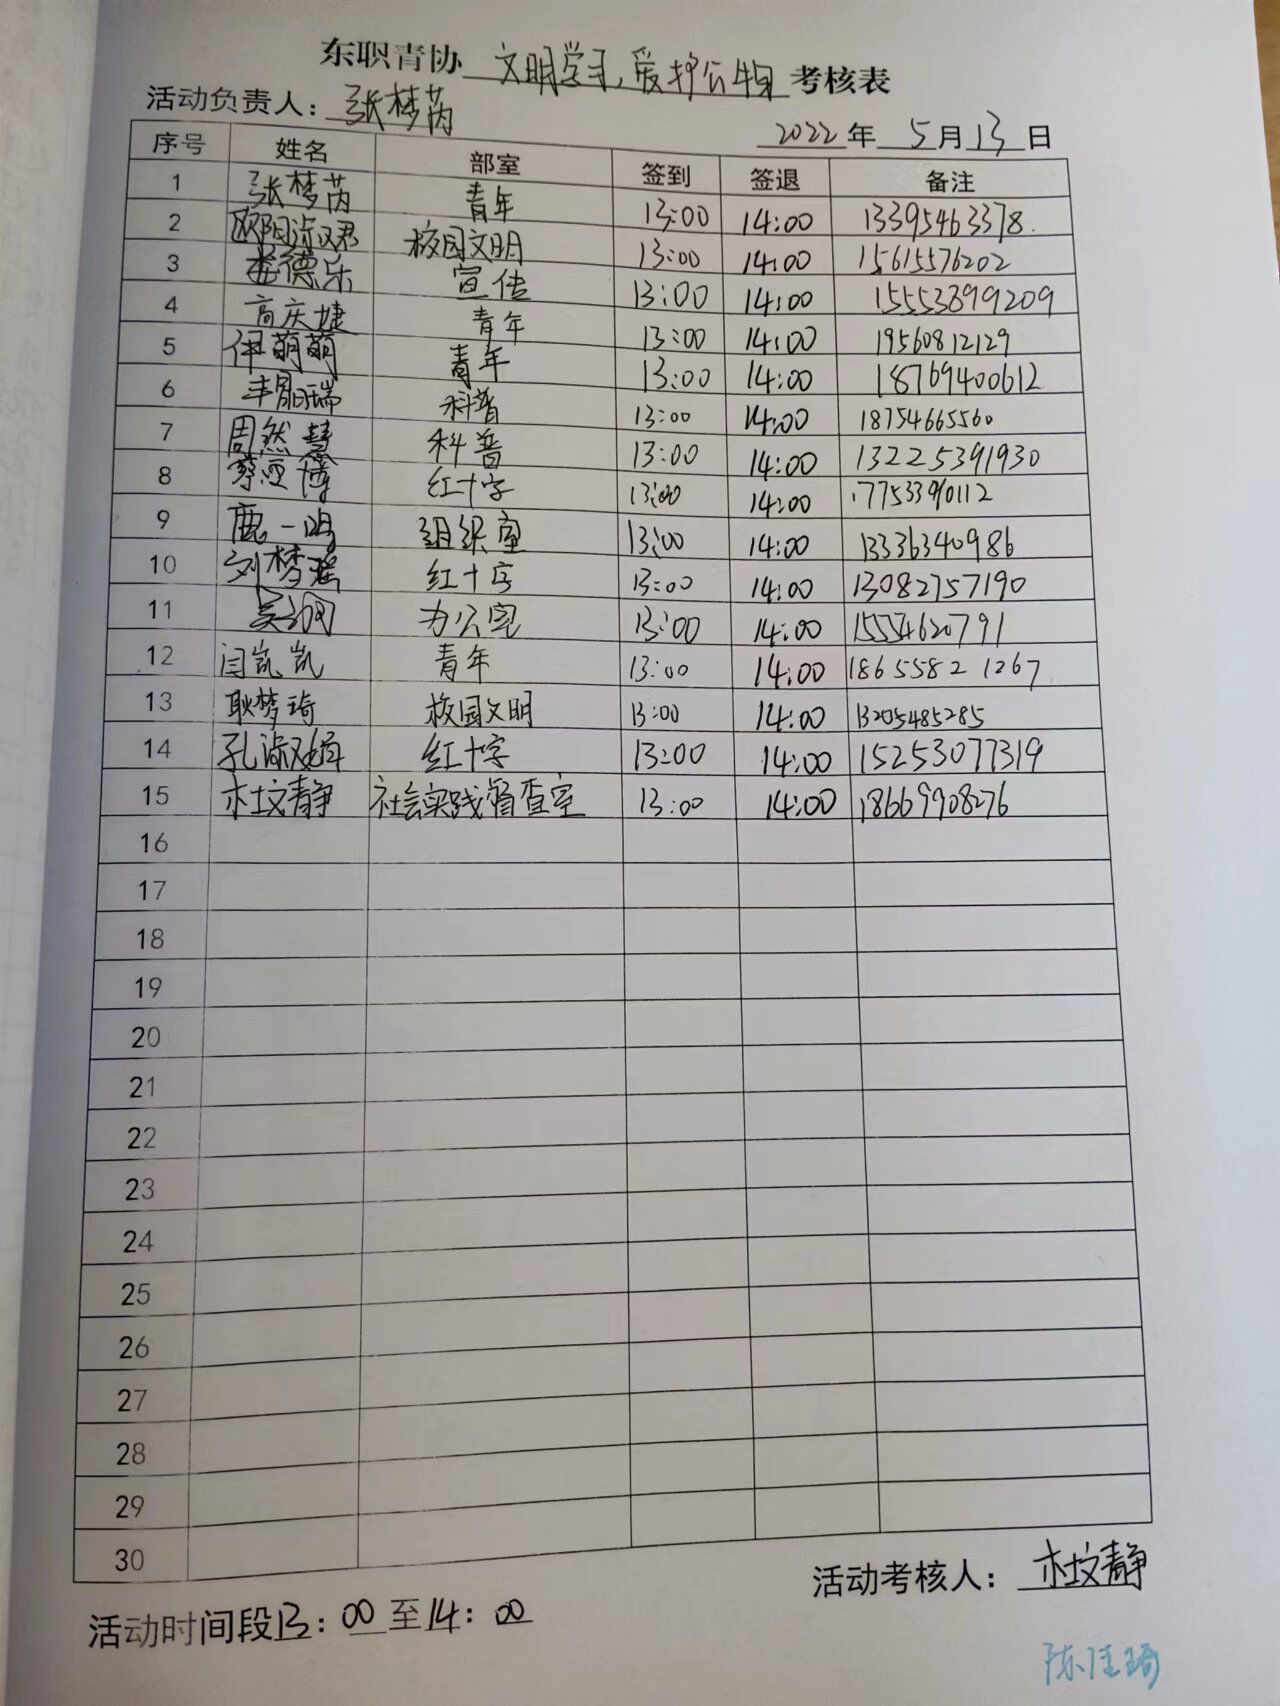 东职青协 文明学习,爱护公物 考核表
活动负责人: 张梦芮
2022 年 5 月 13 日
序号 姓名 部室 签到 签退 备注
1 张梦芮 青年 13:00 14:00 13395463378.
2 校园文明 13:00 14:00 15615576202
3 宣传 13:00 14:00 15553899209
4 高庆婕 青年 13:00 14:00 19560812129
5 伊萌萌 青年 13:00 14:00 18769400612
6 科普 13:00 14:00 18754665560
7 周然慧 科普 13:00 14:00 13225391930
8 蔡亚博 红十字 13:00 14:00
9 鹿一鸣 组织室 13:00 14:00 13336340986
10 刘梦瑶 红十字 13:00 14:00 13082757190
11 办公室 13:00 14:00 15554620791
12 闫凯凯 青年 13:00 14:00 18655821267
13 耿梦琦 校园文明 13:00 14:00 13205485285
14 孔淑娴 红十字 13:00 14:00 15253077319
15 社会实践督查室 13:00 14:00 18669908276
16
17
18
19
20
21
22
23
24
25
26
27
28
29
30
活动考核人:
活动时间段13:00至14:00
陈佳琦